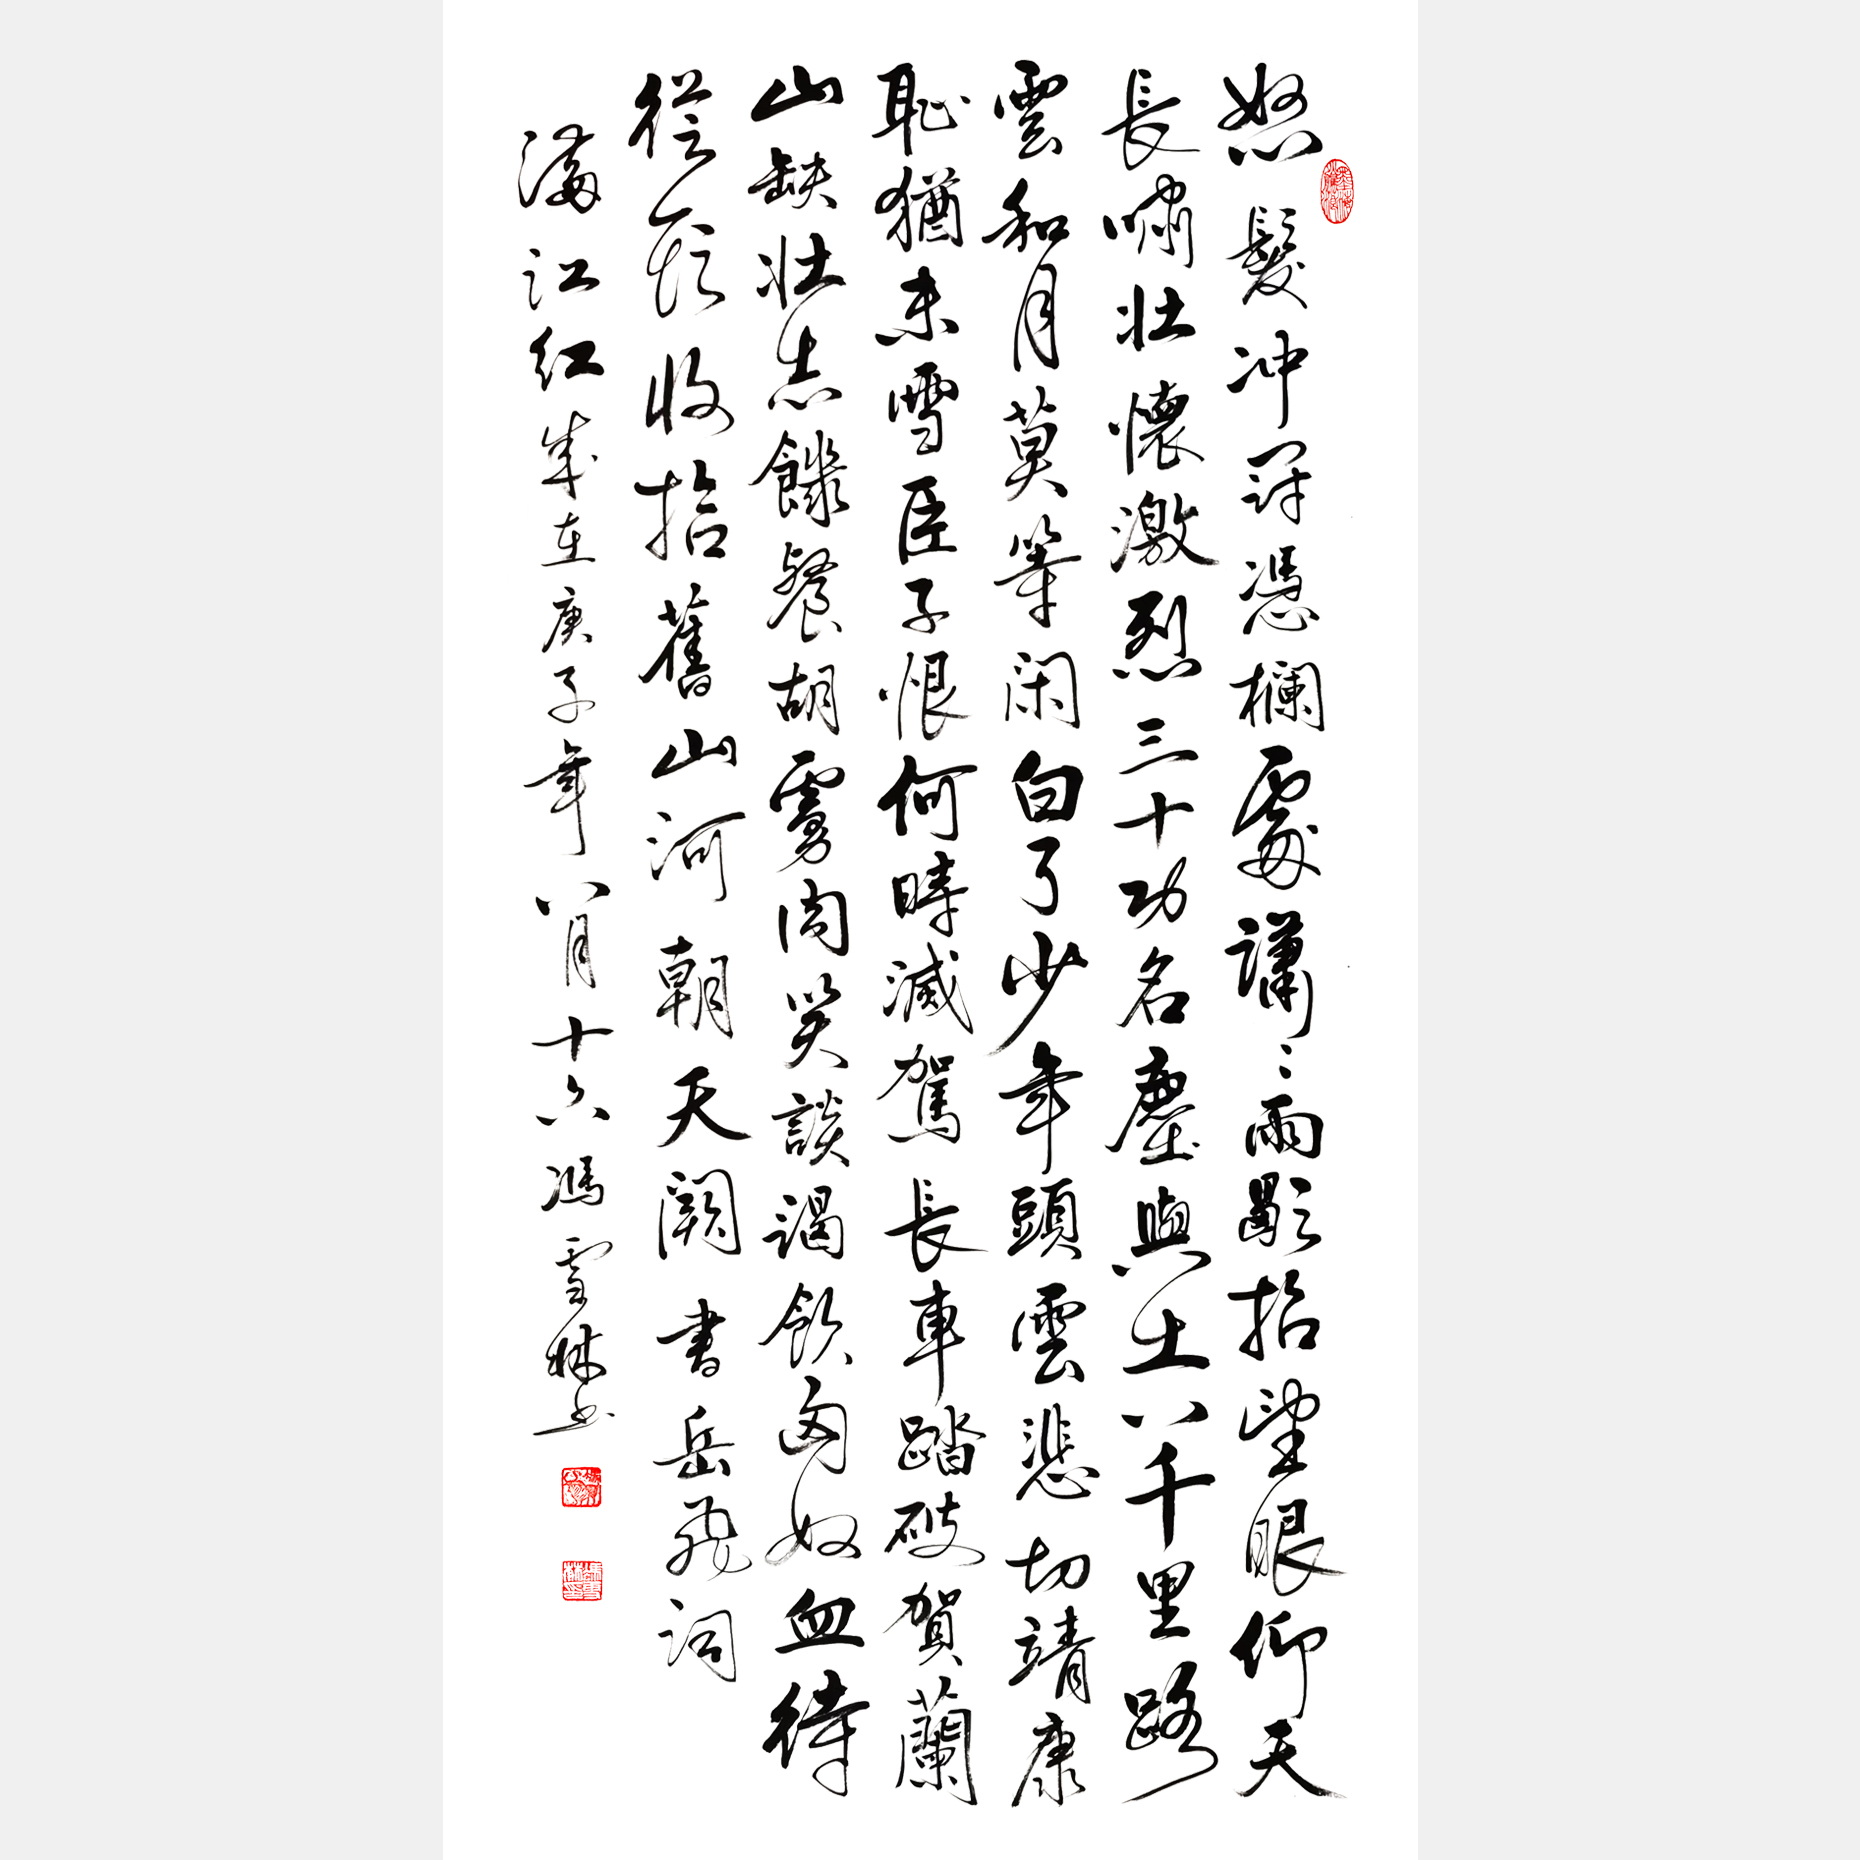 怒髮冲冠憑欄處瀟〻雨歇抬望眼仰天
長嘯壯懷激烈三十功名塵與土八千里路
雲和月莫等闲白了少年頭空悲切靖康
恥猶未雪臣子恨何時滅駕長車踏破賀蘭
山缺壯志饑餐胡虜肉笑談渴飲匈奴血待
從頭收拾舊山河朝天闕 書岳飛詞
滿江红 歲在庚子年八月十六馮雪林书